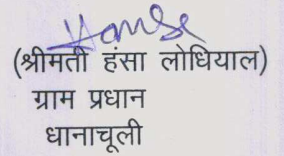 Hansa
(श्रीमती हंसा लोधियाल)
ग्राम प्रधान
धानाचूली